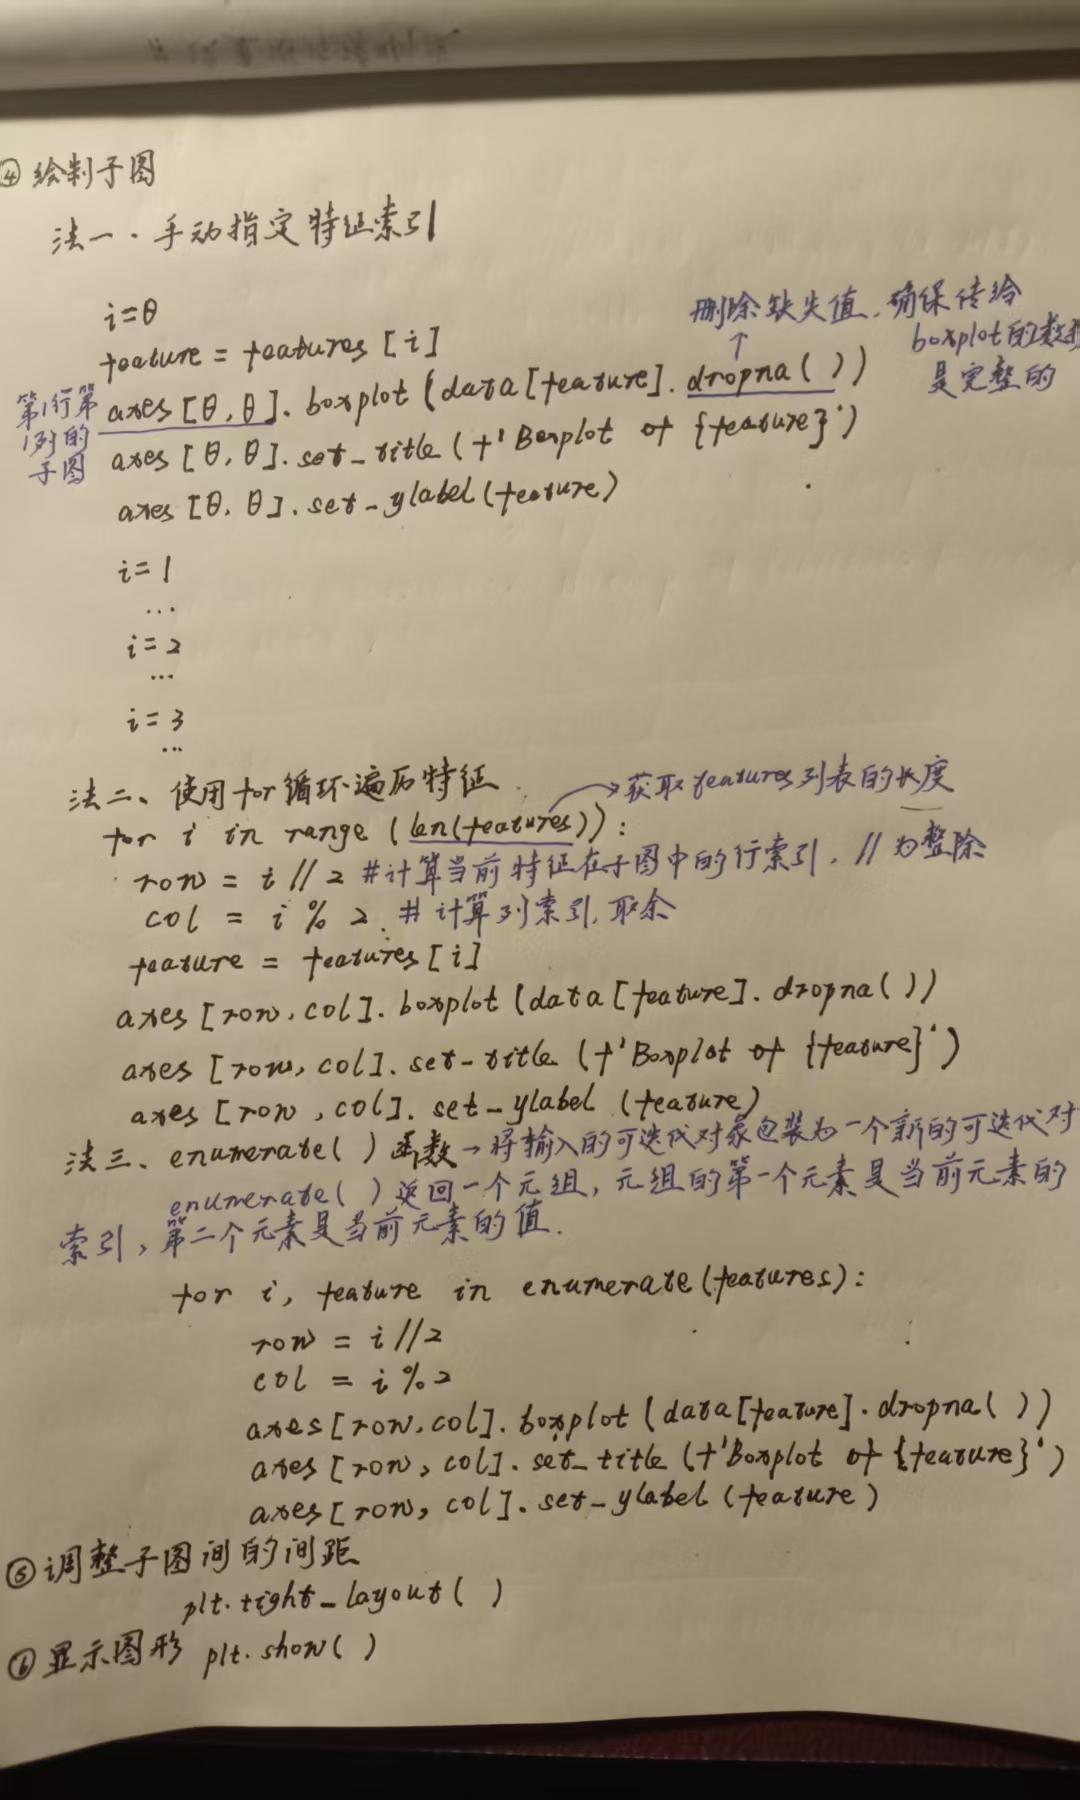 ④绘制子图
法一.手动指定特征索引
i=0
feature = features [i]
删除缺失值,确保传给
boxplot的数据
是完整的
第1行第
1列的
子图
axes [0,0]. boxplot (data[feature]. dropna( ))
axes [0,0]. set_title (f'Boxplot of {feature}')
axes [0,0]. set_ylabel(feature)
i=1
...
i=2
...
i=3
...
法二、使用for循环遍历特征
→获取features列表的长度
for i in range (len(features)):
row = i // 2 #计算当前特征在子图中的行索引,//为整除
col = i % 2 # 计算列索引,取余
feature = features[i]
axes [row,col]. boxplot (data[feature]. dropna( ))
axes [row, col]. set_title (f'Boxplot of {feature}')
axes [row, col]. set_ylabel (feature)
法三、enumerate( )函数→将输入的可迭代对象包装为一个新的可迭代对
enumerate( )返回一个元组,元组的第一个元素是当前元素的
索引,第二个元素是当前元素的值.
for i, feature in enumerate(features):
row = i//2
col = i%2
axes[row,col]. boxplot (data[feature]. dropna( ))
axes [row, col]. set_title (f'Boxplot of {feature}')
axes [row, col]. set_ylabel (feature)
⑤调整子图间的间距
plt.tight_layout( )
⑥显示图形 plt.show( )